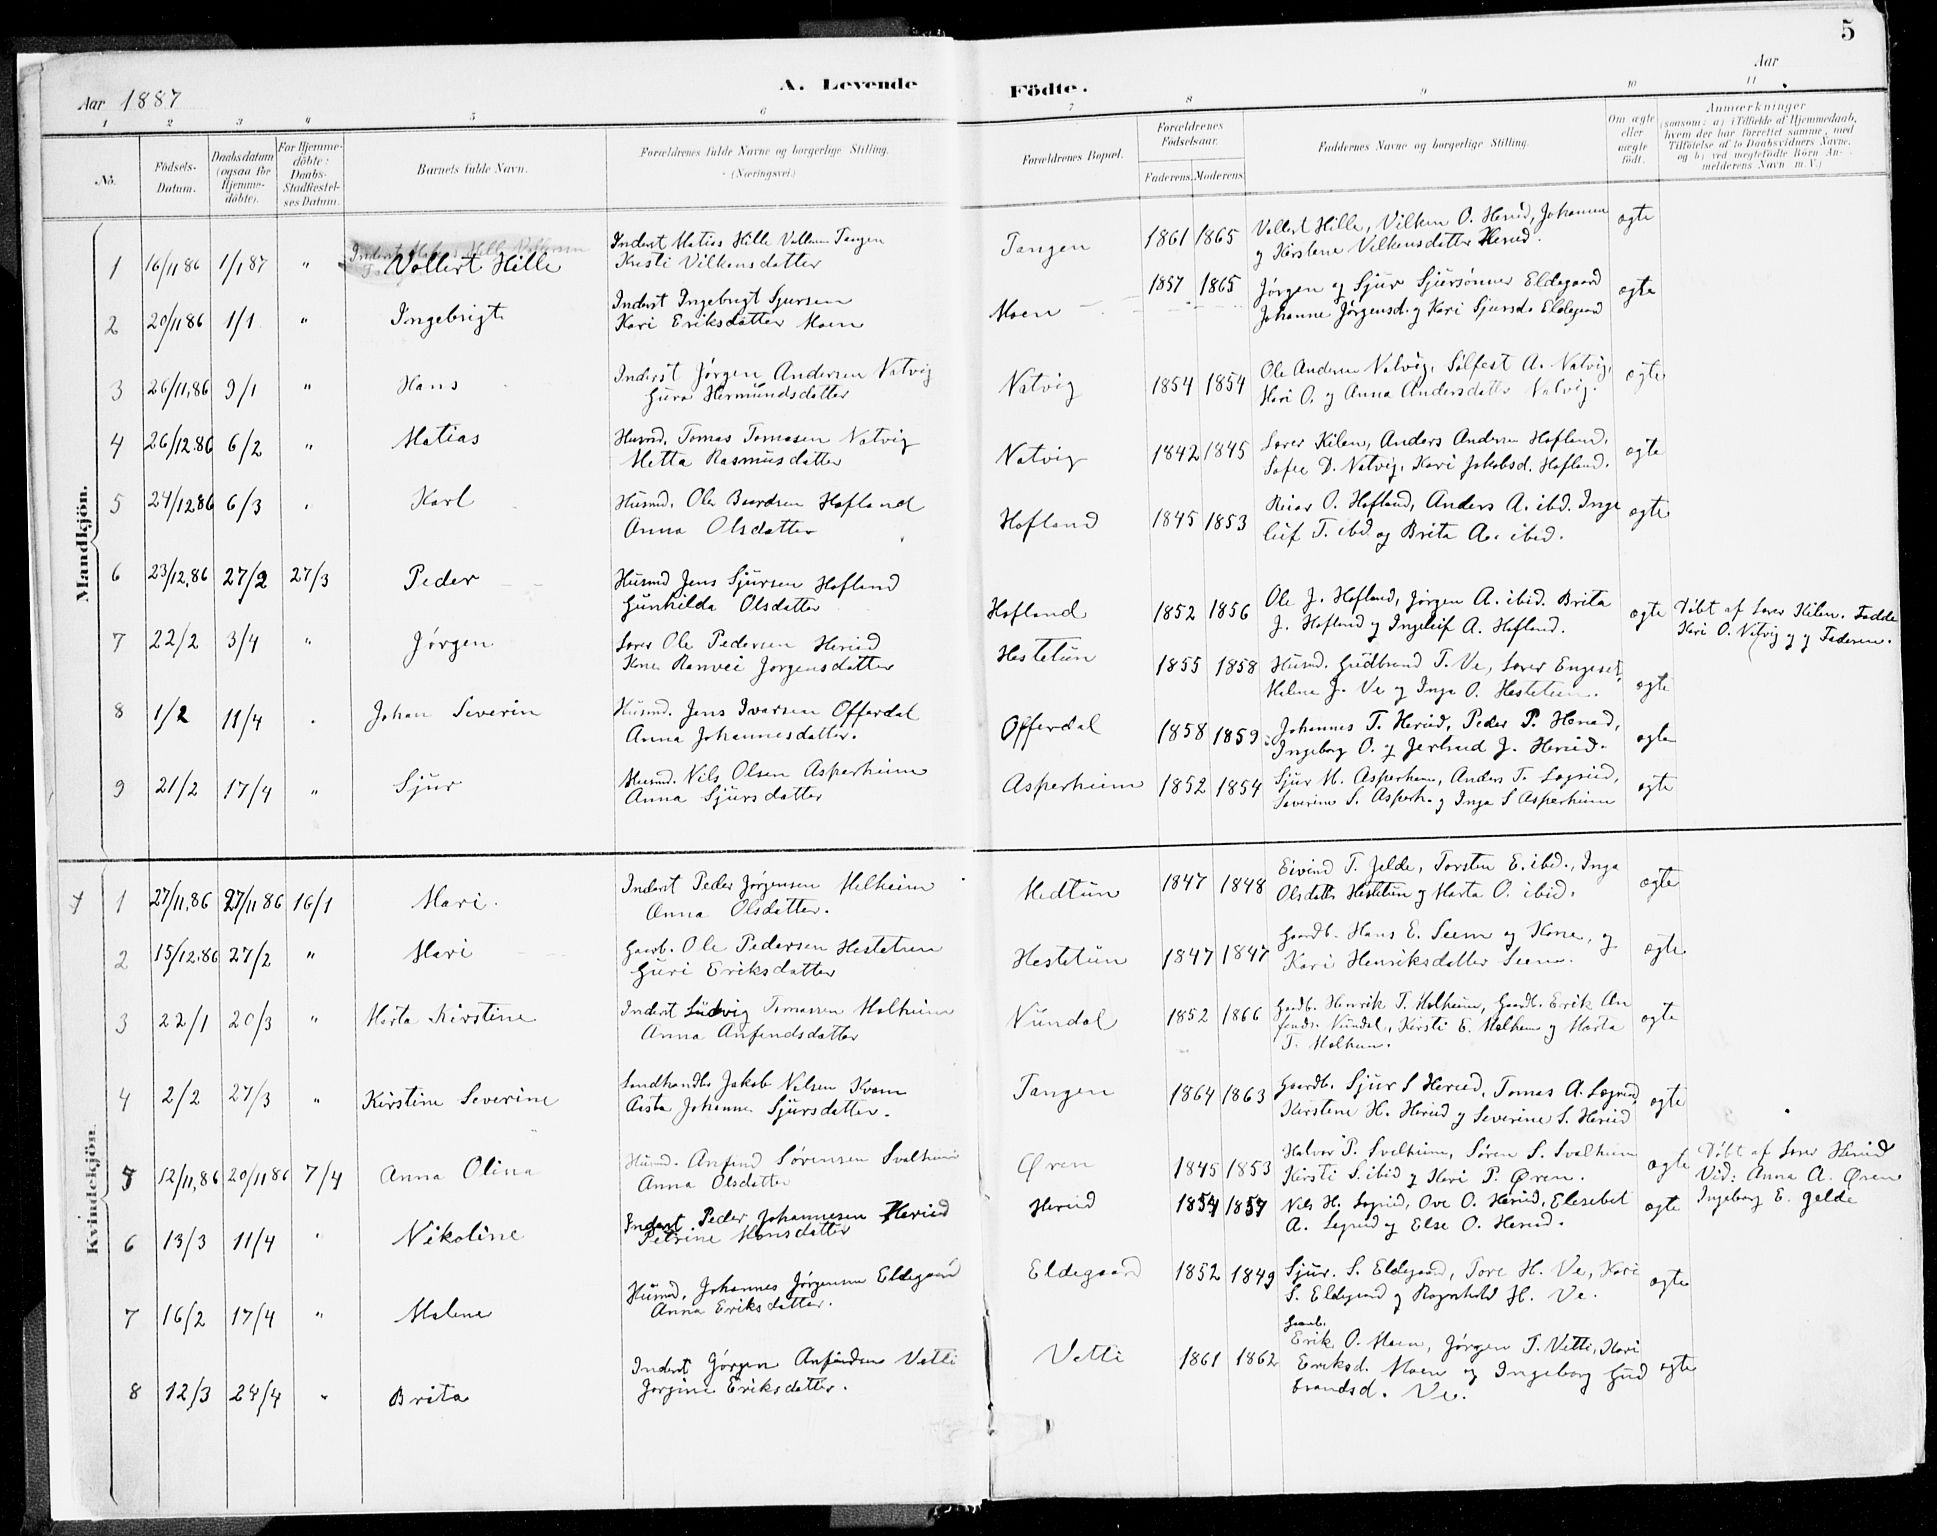 5
Aar 1887
A. Levende
Födte.
Aar
1 2 3 4 5 6 7 8 9 10 11
No.
Födsels-Datum.
Daabsdatum (ogsaa for Hjemme-döbte).
For Hjemme-döbte: Daabs-Stadfæstel-ses Datum.
Barnets fulde Navn.
Forældrenes fulde Navne og borgerlige Stilling. (Næringsvei.)
Forældrenes Bopæl.
Forældrenes Födselsaar.
Faderens. Moderens.
Faddernes Navne og borgerlige Stilling.
Om ægte eller uægte födt.
Anmærkninger
(saasom: a) i Tilfælde af Hjemmedaab,
hvem der har forrettet samme, med
Tilföielse af to Daabsvidners Navne,
og b) ved uegtefödte Börn An-
melderens Navn m. V.)
Mandkjön.
1 16/11 86 1/1 87 " Vollert Hille
Inderst Matias Hille Vollersen Tangen
Kristi Vilkensdatter
Tangen 1861 1865
Vollert Hille, Vilken O. Herud, Johanna
og Kirstene Vilkensdatter Herud.
ogte
2 20/11 86 1/1 " Ingebrigt
Inderst Ingebrigt Sjursen
Kari Eriksdatter Moen
Moen 1857 1865
Jørgen og Sjur Sjursønner Eldegaard
Johanne Jørgensd. og Kari Sjursd. Eldegaard
ogte
3 26/11,86 9/1 " Hans
Inderst Jørgen Andersen Natvig
Guro Hermundsdatter
Natvig 1854 1854
Ole Andersen Natvig, Sølfest A. Natvig,
Kari O. og Anna Andersdatter Natvig.
ogte
4 26/12.86 6/2 " Matias
Husmd. Tomas Tomasen Natvig
Metta Rasmusdatter
Natvig 1842 1845
Lærer Kilen, Anders Andersen Hofland,
Sofie D. Natvig, Kari Jakobsd. Hofland.
ogte
5 24/12 86 6/3 " Karl
Husmd. Ole Baardsen Hofland
Anna Olsdatter
Hofland 1845 1853
Reiar O. Hofland, Anders A. ibd. Inge
leif T. ibd og Brita A. ibid.
ogte
6 23/12,86 27/2 27/3 Peder
Husmd Jens Sjursen Hofland
Gunhilda Olsdatter
Hofland 1852 1856
Ole J. Hofland, Jørgen A. ibid. Brita
J. Hofland og Ingeleif A. Hofland.
ogte
Døbt af Lærer Kilen. Fadde
Kari O. Natvig og Faderen.
7 22/2 3/4 " Jørgen
Lærer Ole Pedersen Herud
Kone Ranvei Jørgensdatter
Hestetun 1855 1858
Husmd. Gudbrand T. Ve, Lærer Engeset,
Helena J. Ve og Inga O. Hestetun.
ogte
8 1/2 11/4 Johan Severin
Husmd. Jens Ivarsen Offerdal
Anna Johannesdatter.
Offerdal 1858 1859
Johannes T. Herud, Peder P. Herud,
Ingeborg O. og Jertrud J. Herud.
ogte
9 21/2 17/4 " Sjur
Husmd. Nils Olsen Asperheim
Anna Sjursdatter
Asperheim 1852 1854
Sjur M. Asperheim, Anders T. Lægreid,
Severine S. Asperh. og Inga S Asperheim
ogte
Kvindekjön.
1 27/11,86 27/11 86 16/1 Mari.
Inderst Peder Jørgensen Melheim
Anna Olsdatter.
Midtun 1847 1848
Eivind T. Jelde, Torsten E. ibd., Inga
Olsdatter Hestetun og Marta O. ibid.
ogte
2 15/12.86 27/2 " Mari
Gaardb. Ole Pedersen Hestetun
Guri Eriksdatter
Hestetun 1847 1847
Gaardb. Hans E. Seim og Kone, og
Kari Henriksdatter Seim.
ogte
3 22/1 20/3 " Marta Kirstine
Inderst Ludvig Tomassen Molheim
Anna Anfindsdatter
Nundal 1852 1866
Gaardb. Henrik T. Molheim, Gaardb. Erik An
finds. Nundal, Kirsti E. Molheim og Marta
T. Molheim.
ogte
4 2/2 27/3 " Kirstine Severine
Landhandl. Jakob Nilsen Kvam
Aasta Johanna Sjursdatter.
Tangen 1864 1863
Gaardb. Sjur S Herud, Tomas A. Lægreid,
Kirstene H. Herud og Severine S. Herud
ogte
5 12/11,86 20/11 86 7/4 Anna Olina
Husmd. Anfind Sørensen Svalheim
Anna Olsdatter
Øren 1845 1853
Halvor P. Svalheim, Søren S. Svalheim
Kirsti S. ibid og Kari P. Øren.
ogte
Døbt af Lærer Herud
Vid: Anna A. Øren
Ingeborg E. Gjelde
6 13/3 11/4 " Nikoline
Inderst Peder Johannesen Herud
Petrine Monsdatter
Herud 1854 1857
Nils H. Lægreid, Ove O. Herud, Elesebet
A. Legreid og Else O. Herud.
ogte
7 16/2 17/4 " Malene
Husmd. Johannes Jørgensen Eldegaard
Anna Eriksdatter.
Eldegaard 1852 1849
Sjur. S. Eldegaard, Tore H. Ve, Kari
S. Eldegaard og Ragnhild H. Ve.
ogte
8 12/3 24/4 " Brita
Inderst Jørgen Anfindsen Vetti
Jorgine Eriksdatter.
Vetti 1861 1862
Gaardb.
Erik O. Moen, Jørgen T. Vetti, Kari
Eriksd. Moen og Ingeborg Gud
brandsd. Ve.
ogte